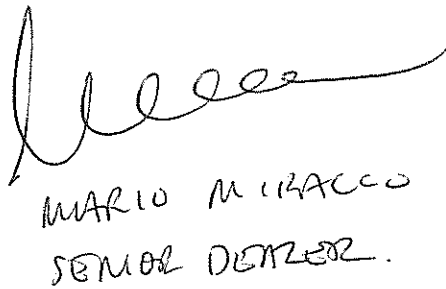 MARIO MIRACCO
SENIOR DEALER.